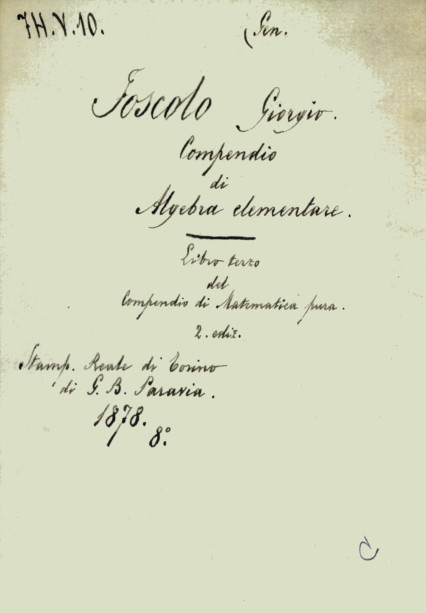 7H.V.10. Gen.
Foscolo Giorgio.
Compendio
di
Algebra elementare.
Libro terzo
del
Compendio di Matematica pura.
2. ediz.
Stamp. Reale di Torino
di G. B. Paravia.
1878.
8°.
C